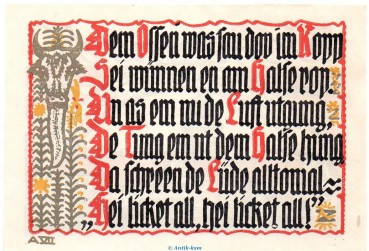 Dem Ossen was sau dov im Kopp
Sei wünnen en am Halse rop.
Un as em nu de Luft utgung,
De Tung em ut dem Halse hung
Da schreen de Lüde alltomal
„Hei licket all, hei licket all!"
A VII
© Antik-kom